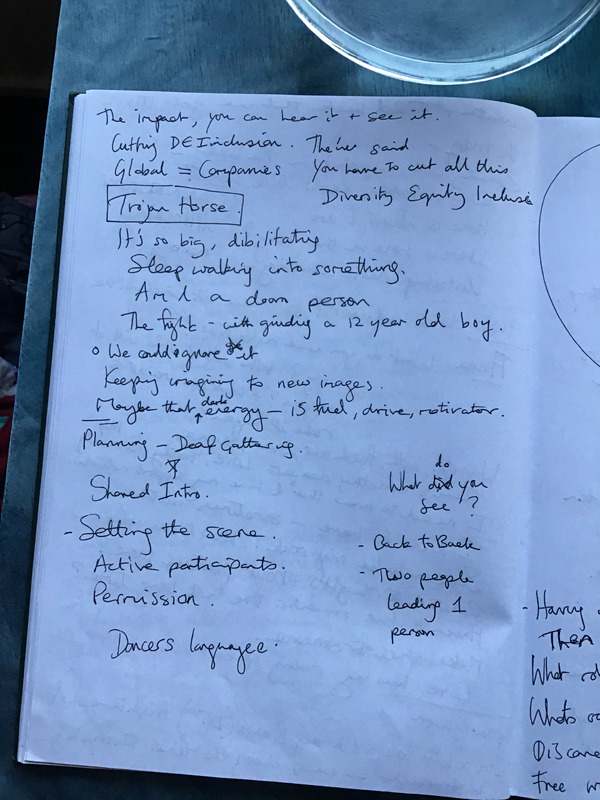 The impact, you can hear it + see it.
Cutting DEInclusion. They've said
Global = Companies You have to cut all this
Trojan Horse. Diversity Equity Inclusi
It's so big, dibilitating
Sleep walking into something.
Am I a doom person
The fight - with a 12 year old boy.
We could ignore it
Keeping imagining to new images.
Maybe that dark energy - is fuel, drive, motivator.
Planning - Deaf Gathering.
Shared Intro.
- Setting the scene.
Active participants.
Permission.
Dancers language.
What do you
see?
- Back to Back
- Two people
leading 1
person
- Having
Then
What
Whats
Free